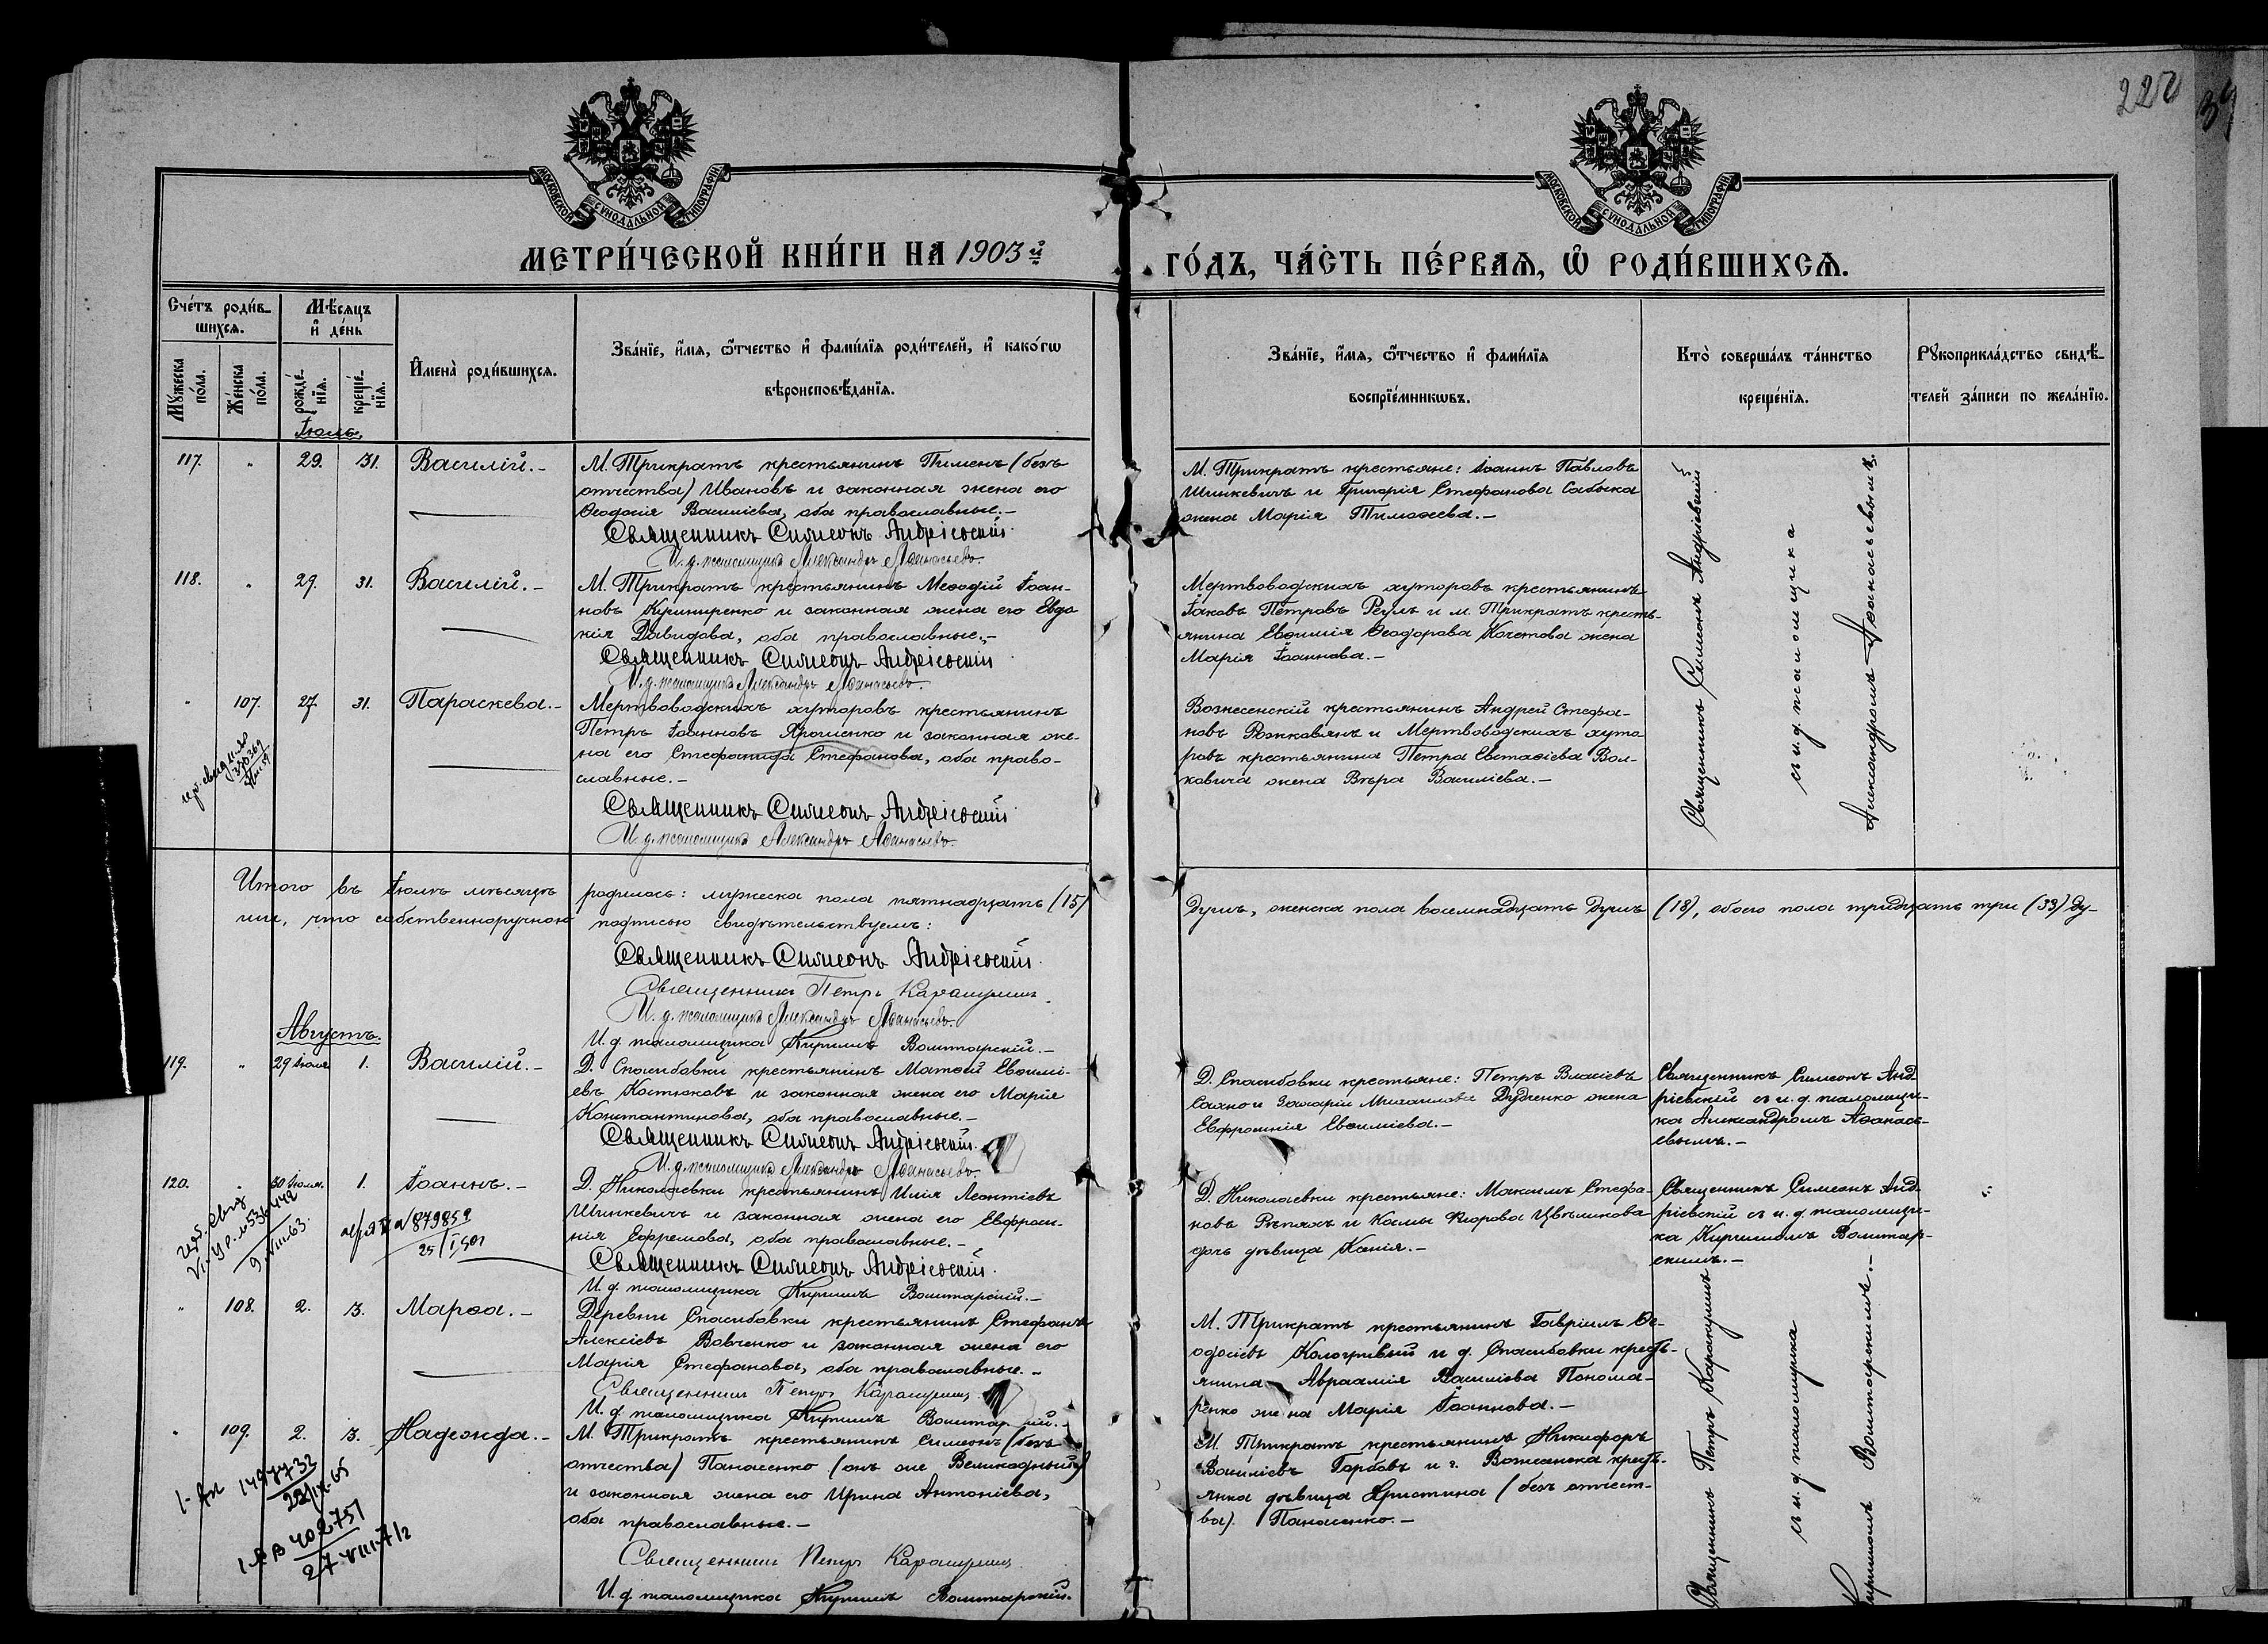 220
МОСКОВСКОЙ СѴНОДАЛЬНОЙ ТИПОГРАФІИ
МОСКОВСКОЙ СѴНОДАЛЬНОЙ ТИПОГРАФІИ
МЕТРИ́ЧЕСКОЙ КНИ́ГИ НА 1903й
ГО́ДЪ, ЧА́СТЬ ПЕ́РВАѦ, Ѡ҆ РОДИ́ВШИХСѦ.
Сче́тъ роди́в-
шихсѧ.
Мѣ́сяцъ
и҆ де́нь
Мꙋ́жеска
по́ла.
Же́нска
по́ла.
рожде́-
нїѧ.
креще́-
нїѧ.
И҆мена̀ роди́вшихсѧ.
Зва́нїе, и҆́мѧ, ѻ҆́тчество и҆ фами́лїѧ роди́телей, и҆ како́гѡ
вѣроисповѣ́данїѧ.
Зва́нїе, и҆́мѧ, ѻ҆́тчество и҆ фами́лїѧ
воспрїе́мникѡвъ.
Кто̀ соверша́лъ та́инство
креще́нїѧ.
Рꙋкоприкла́дство свидѣ́-
телей за́писи по жела́нїю.
Іюль.
117. " 29. 31. Василій.-
М. Трикратъ крестьянинъ Пименъ (безъ
отчества) Ивановъ и законная жена его
Ѳеодосія Василіева, оба православные.-
Священникъ Симеонъ Андріевскій.
И. д. псаломщика Александръ Аѳанасьевъ.
М. Трикратъ крестьяне: Іоаннъ Павловъ
Шинкевичъ и Григорія Стефанова Сабока
жена Марія Тимоѳеева.-
118. " 29. 31. Василій.-
М. Трикратъ крестьянинъ Меѳодій Іоан-
новъ и законная жена его Евдо
кія Давидова, оба православные.-
Священникъ Симеонъ Андріевскій
И. д. псаломщика Александръ Аѳанасьевъ.
Мертвоводскихъ хуторовъ крестьянинъ
Іаковъ Петровъ Регулъ и м. Трикратъ кресть-
янина Евѳимія Ѳеодорова Кочетова жена
Марія Іоаннова.-
" 107. 27. 31. Параскева.-
Мертвоводскихъ хуторовъ крестьянинъ
Петръ Іоанновъ Ярошенко и законная же-
на его Стефанида Стефанова, оба право-
славные.-
Священникъ Симеонъ Андріевскій
И. д. псаломщика Александръ Аѳанасьевъ.
Вознесенскій крестьянинъ Андрей Стефа-
новъ Рожковянъ и Мертвоводскихъ хуто-
ровъ крестьянина Петра Евстаѳіева Вол-
ковича жена Вѣра Василіева.-
Священникъ Симеонъ Андріевскій
съ и. д. псаломщика
Александромъ Аѳанасьевымъ.
Итого въ Іюлѣ мѣсяцѣ родилось: мужеска пола пятнадцать (15)
душъ, женска пола восемнадцать душъ (18), обоего пола тридцать три (33) ду-
ши, что собственноручною подписью свидѣтельствуемъ:
Священникъ Симеонъ Андріевскій.
Священникъ Петръ Каракулинъ
И. д. псаломщика Александръ Аѳанасьевъ.
И. д. псаломщика Кириллъ Волитарскій.-
Августъ.
119. " 29 іюля 1. Василій.-
Д. Спасибовки крестьянинъ Матѳей Евѳимі-
евъ Костюковъ и законная жена его Марія
Константинова, оба православные.-
Священникъ Симеонъ Андріевскій.
И. д. псаломщика Александръ Аѳанасьевъ
Д. Спасибовки крестьяне: Петръ Власіевъ
Сахно и Захарія Михаилова Дудченко жена
Евфросинія Евѳиміева.-
Священникъ Симеонъ Анд-
ріевскій съ и. д. псаломщи-
ка Александромъ Аѳанась-
евымъ.-
120. " 30 іюля. 1. Іоаннъ.-
Д. Николаевки крестьянинъ Илія Леонтіевъ
Шинкевичъ и законная жена его Евфроси-
нія Ефремова, оба православные.-
Священникъ Симеонъ Андріевскій.
И. д. псаломщика Кириллъ Волитарскій.-
Д. Николаевки крестьяне: Максимъ Стефа-
новъ Рѣпяхъ и Цвѣликова
дочь дѣвица Ксенія.-
Священникъ Симеонъ Анд-
ріевскій съ и. д. псаломщи-
ка Кирилломъ Волитар-
скимъ.-
9.VIII.63.
879859
" 108. 2. 3. Марѳа.-
Деревни Спасибовки крестьянинъ Стефанъ
Алексіевъ Вовченко и законная жена его
Марія Стефанова, оба православные.-
Священникъ Петръ Каракулинъ
И. д. псаломщика Кириллъ Волитарскій.-
М. Трикратъ крестьянинъ Гавріилъ Ѳе-
одосіевъ Кологривый и д. Спасибовки кресть-
янина Авраамія Василіева Понома-
ренко жена Марія Іоаннова.-
" 109. 2. 3. Надежда.-
М. Трикратъ крестьянинъ Симеонъ (безъ
отчества) Панасенко (онъ же Великодный)
и законная жена его Ирина Антоніева,
оба православные.-
Священникъ Петръ Каракулинъ
И. д. псаломщика Кириллъ Волитарскій.
М. Трикратъ крестьянинъ Никифоръ
Василіевъ Горбовъ и г. Вознесенска кресть-
янка дѣвица Христина (безъ отчест-
ва) Панасенко.-
Священникъ Петръ Каракулинъ
съ и. д. псаломщика
Кирилломъ Волитарскимъ.-
402751